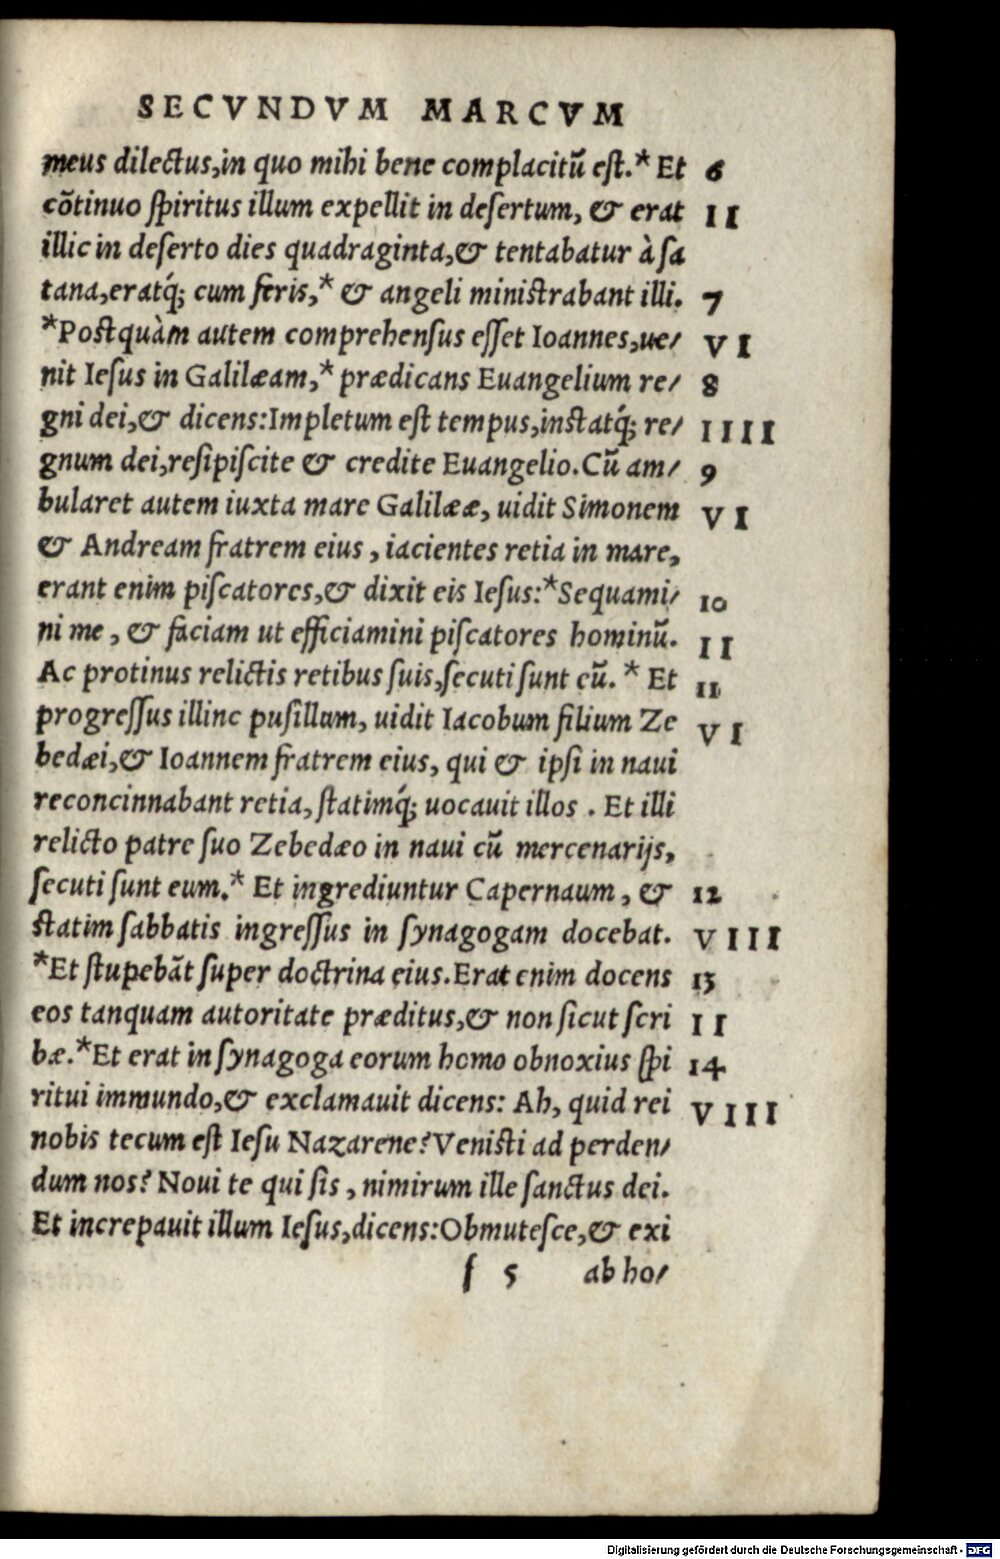 SECVNDVM MARCVM
meus dilectus,in quo mihi bene complacitũ eſt.* Et 6
cõtinuo ſpiritus illum expellit in deſertum, & erat II
illic in deſerto dies quadraginta,& tentabatur à ſa
tana,eratq́; cum feris,* & angeli miniſtrabant illi. 7
*Poſtquàm autem comprehenſus eſſet Ioannes,ue/ VI
nit Ieſus in Galilæam,* prædicans Euangelium re/ 8
gni dei,& dicens:Impletum eſt tempus,inſtatq́; re/ IIII
gnum dei,reſipiſcite & credite Euangelio.Cũ am/ 9
bularet autem iuxta mare Galilææ, uidit Simonem VI
& Andream fratrem eius , iacientes retia in mare,
erant enim piſcatores,& dixit eis Ieſus:*Sequami/ 10
ni me , & faciam ut efficiamini piſcatores hominũ. II
Ac protinus relictis retibus ſuis,ſecuti ſunt eũ. * Et 11
progreſſus illinc puſillum, uidit Iacobum filium Ze VI
bedæi,& Ioannem fratrem eius, qui & ipſi in naui
reconcinnabant retia, ſtatimq́; uocauit illos . Et illi
relicto patre ſuo Zebedæo in naui cũ mercenarijs,
ſecuti ſunt eum.* Et ingrediuntur Capernaum , & 12
ſtatim ſabbatis ingreſſus in ſynagogam docebat. VIII
*Et ſtupebãt ſuper doctrina eius.Erat enim docens 13
eos tanquam autoritate præditus,& non ſicut ſcri II
bæ.*Et erat in ſynagoga eorum homo obnoxius ſpi 14
ritui immundo,& exclamauit dicens: Ah, quid rei VIII
nobis tecum eſt Ieſu Nazarene?Veniſti ad perden/
dum nos? Noui te qui ſis , nimirum ille ſanctus dei.
Et increpauit illum Ieſus,dicens:Obmuteſce,& exi
ſ 5 ab ho/
Digitalisierung gefördert durch die Deutsche Forschungsgemeinschaft - DFG